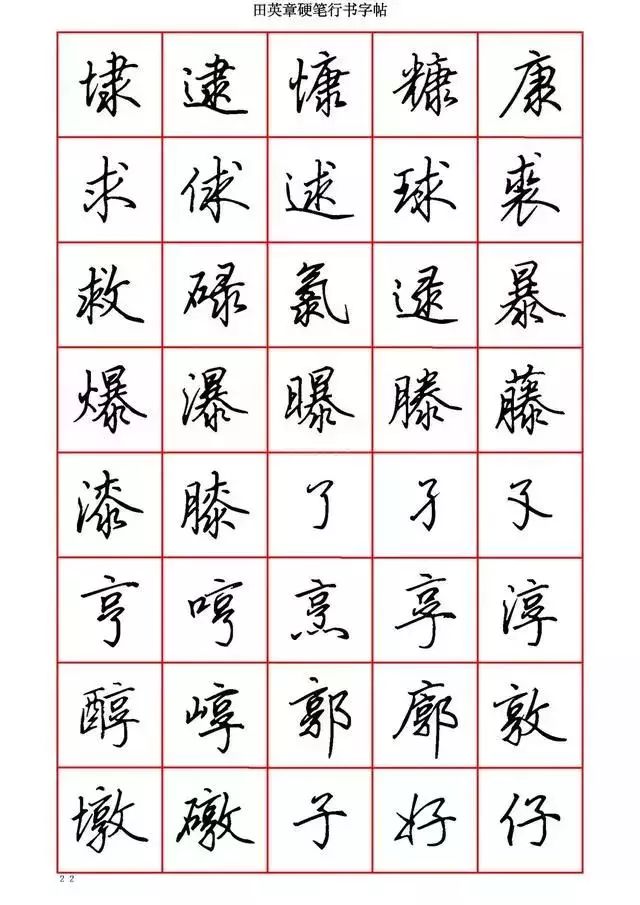 田英章硬笔行书字帖
埭逮慷糠康
求俅逑球裘
救碌氯逯暴
爆瀑曝滕藤
漆膝了孑孓
亨哼烹享淳
醇崞郭廓敦
墩礅子好仔
22